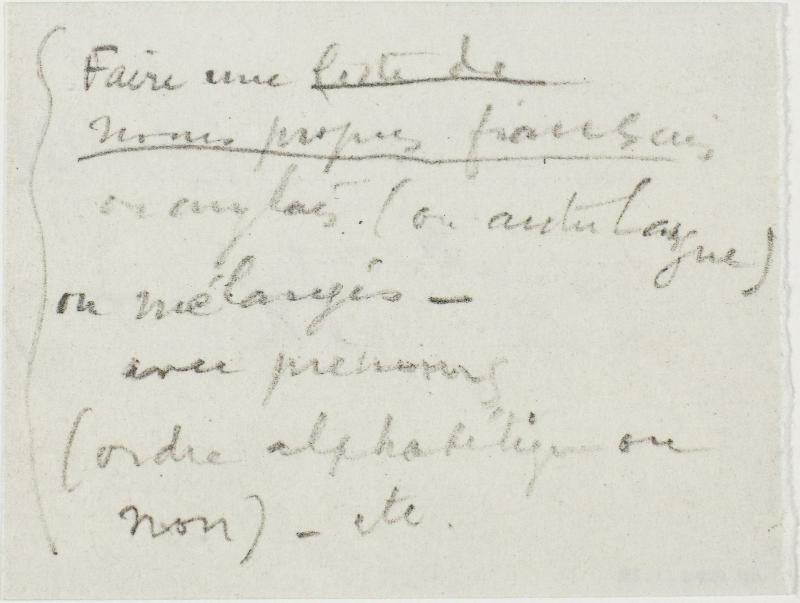 Faire une liste de
noms propres français
ou anglais. (ou autre langue)
ou mélangés —
avec prénoms
(ordre alphabétique ou
non) — etc.